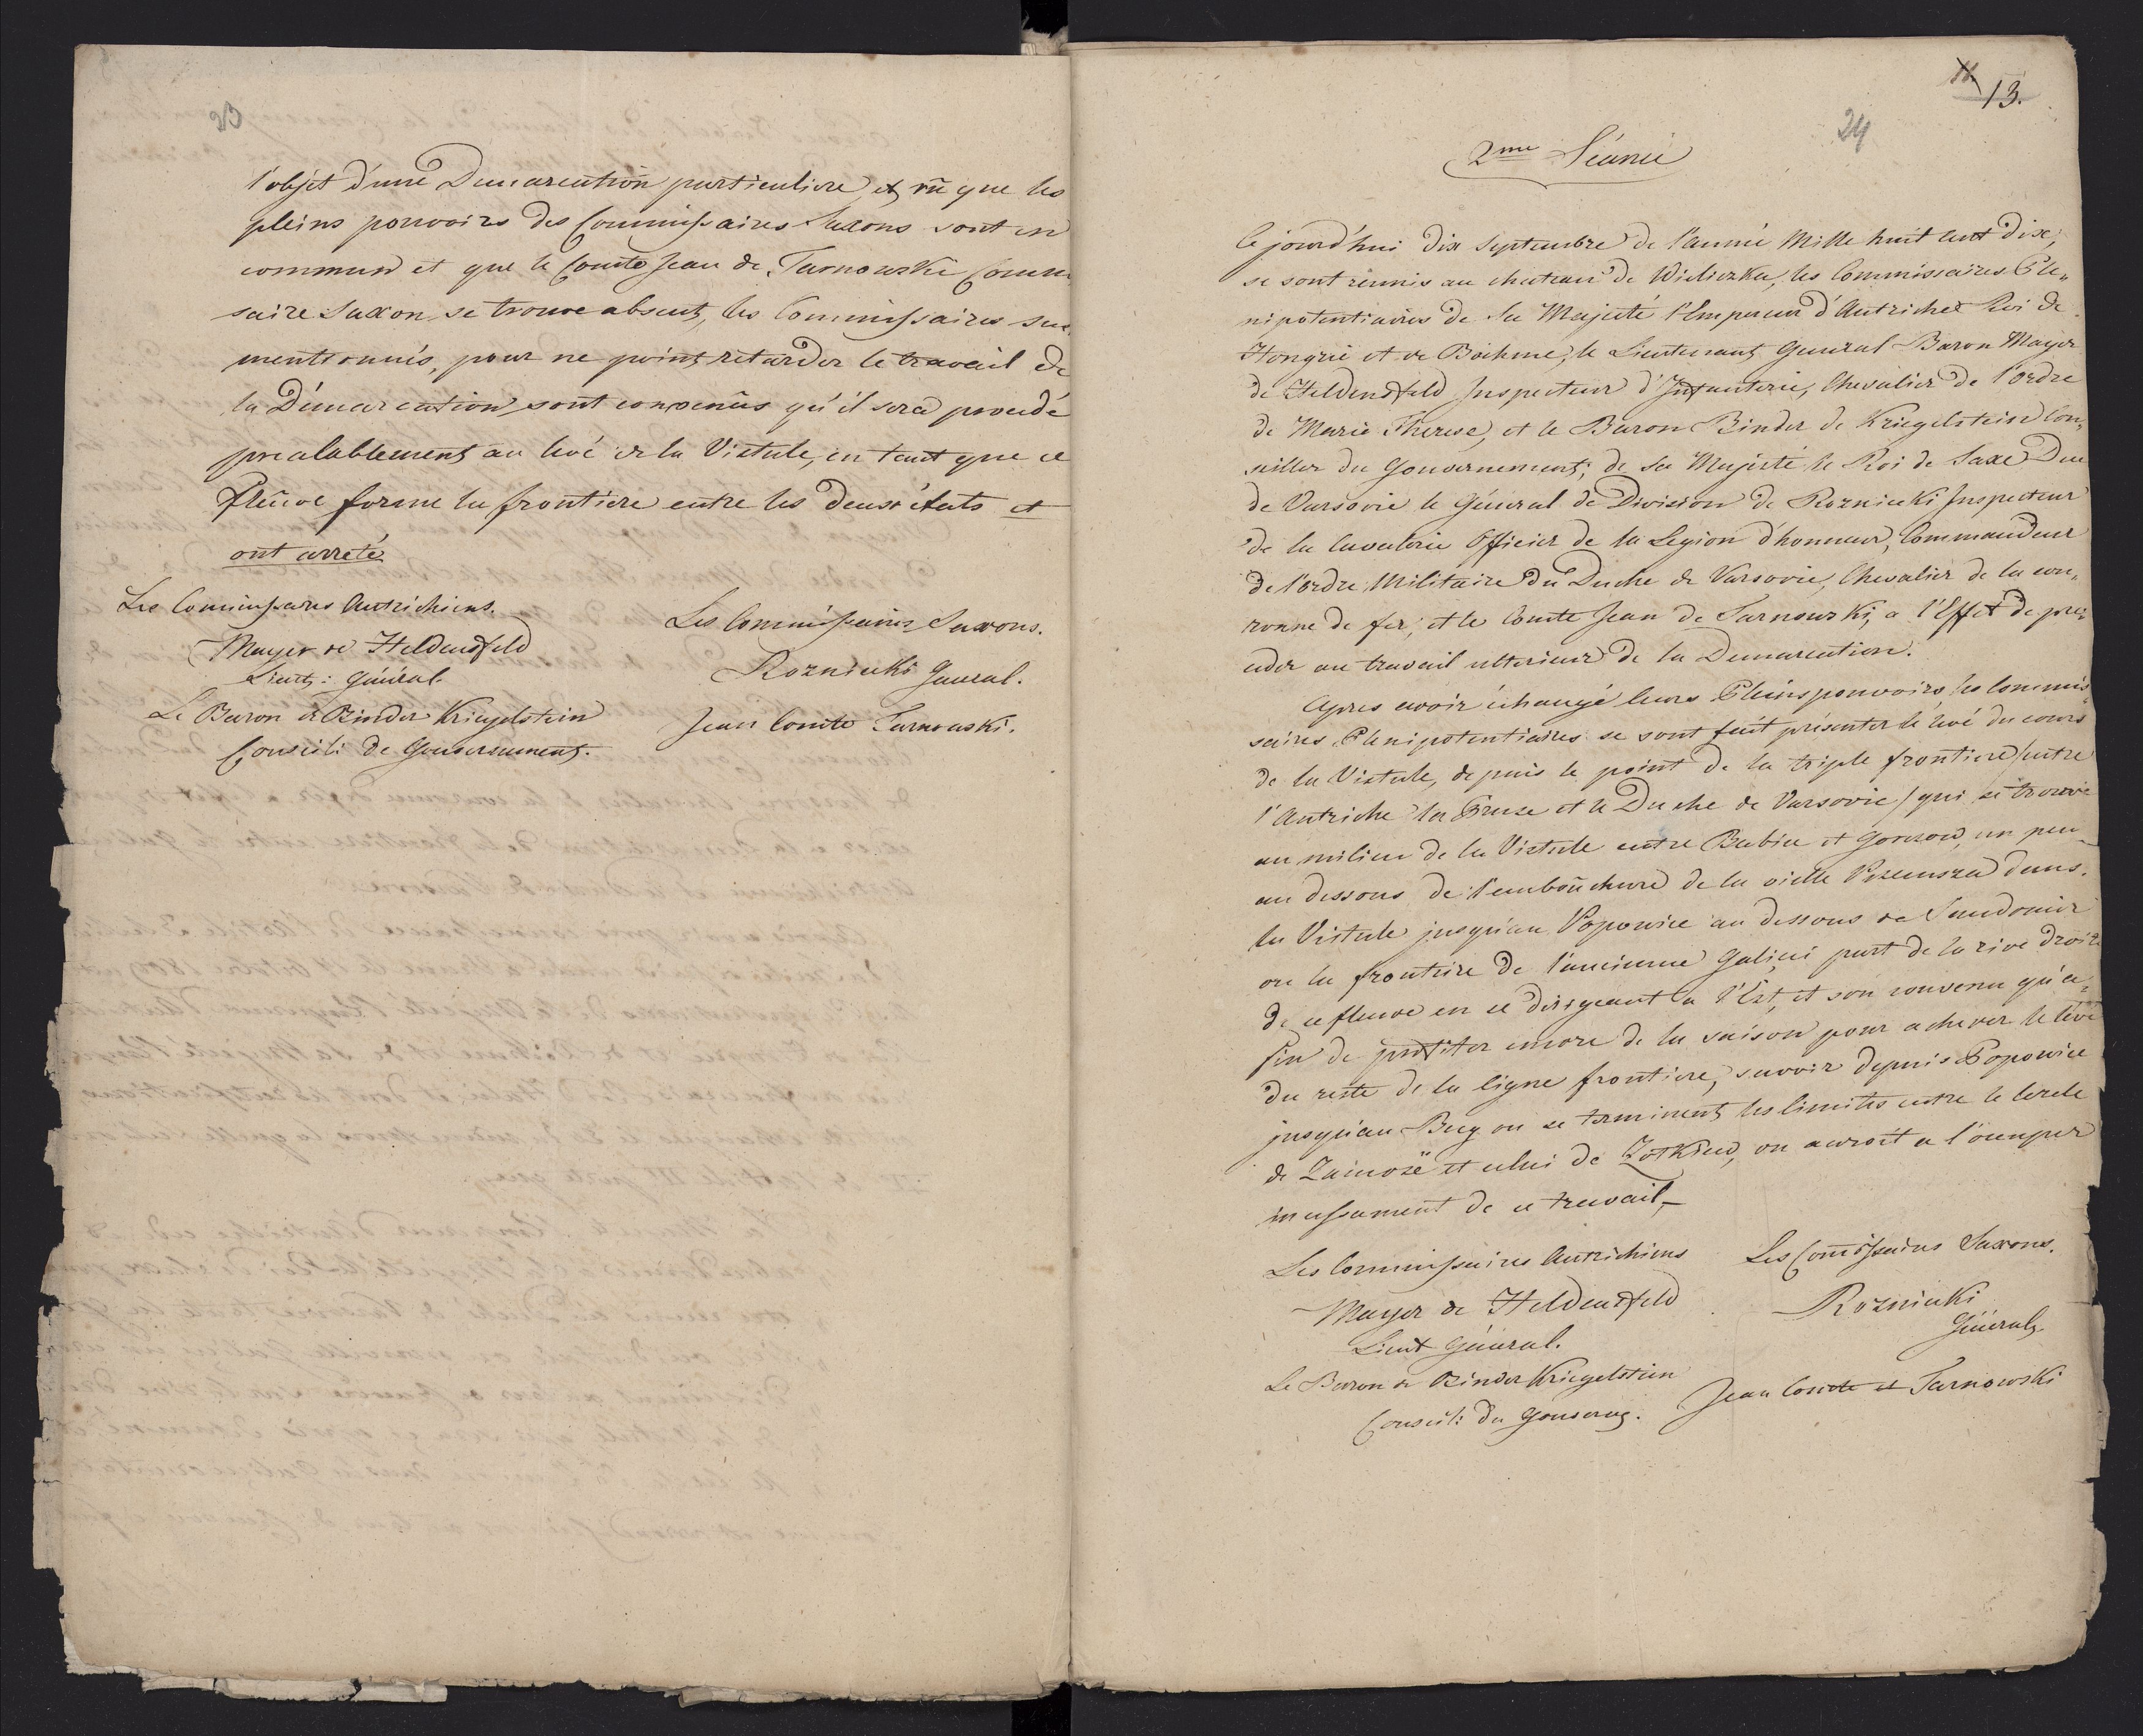 23
l'objet d'une Demarcation particuliere et vû que les
pleins pouvoirs des Commissaires Saxons sont en
commun et que le Comte Jean de Tarnowski Commis
saire Saxon se trouve absent, les Commissaires sus
mentionnés, pour ne point retarder le travail de
la Démarcation sont convenûs qu'il sera procedé
prealablement au levé de la Vistule, en tant que ce
fleûve forme la frontiere entre les deux états et
ont arreté
Les Commissaires Autrichiens.
Mayer de Heldensfeld
Lieut: Général.
Le Baron de Binder Kriegelstein
Conseil: de Gouvernement.
Les Commissaires Saxons.
Rozniecki General.
Jean Comte Tarnowski.
11.
13.
24
2me Séance
Ce jourd'hui dix Septembre de l'année Mille huit cent dix,
se sont réunis au chateau de Wieliczka, les Commissaires Ple„
nipotentiaires de Sa Majesté l'Empereur d'Autriche Roi de
Hongrie et de Boehme, le Lieutenant General Baron Mayer
de Heldensfeld Inspecteur d'Infanterie, Chevalier de l'ordre
de Marie Therese, et le Baron Binder de Kriegelstein Con„
seiller du Gouvernement; de Sa Majesté le Roi de Saxe Duc
de Varsovie le Général de Division de Rozniecki Inspecteur
de la Cavalerie Officier de la Legion d'honneur, Commandeur
de l'ordre Militaire du Duche de Varsovie, Chevalier de la cou„
ronne de fer, et le Comte Jean de Tarnowski, a l'Effet de pro„
ceder au travail ulterieur de la Demarcation.
Apres avoir échangé leurs Pleins pouvoirs les Commis„
saires Plenipotentiaires se sont fait présenter le levé du cours
de la Vistule, depuis le point de la triple frontiere /entre
l'Autriche la Pruse et le Duche de Varsovie/ qui se trouve
au milieu de la Vistule entre Babice et Gorzow, un peu
au dessous de l'emboûchure de la vielle Przemsza dans
la Vistule jusqu'au Popowice au dessous de Sandomir
ou la frontiere de l'ancienne Galicie part de la rive droite
de ce fleuve en se dirigeant a l'Est, et son convenu qu'a„
fin de profiter encore de la saison pour achever le levé
du reste de la ligne frontiere, savoir depuis Popowice
jusqu'au Bug ou se terminent les limites entre le Cercle
de Zamosc et celui de Zołkiew, on auroit a l'ocuper
incessament de ce travail,
Les Commissaires Autrichiens
Mayer de Heldensfeld
Lieut Général.
Le Baron de Binder Kriegelstein
Conseil: du Gouvern.
Les Comissaires Saxons.
Rozniecki
Général
Jean Comte de Tarnowski